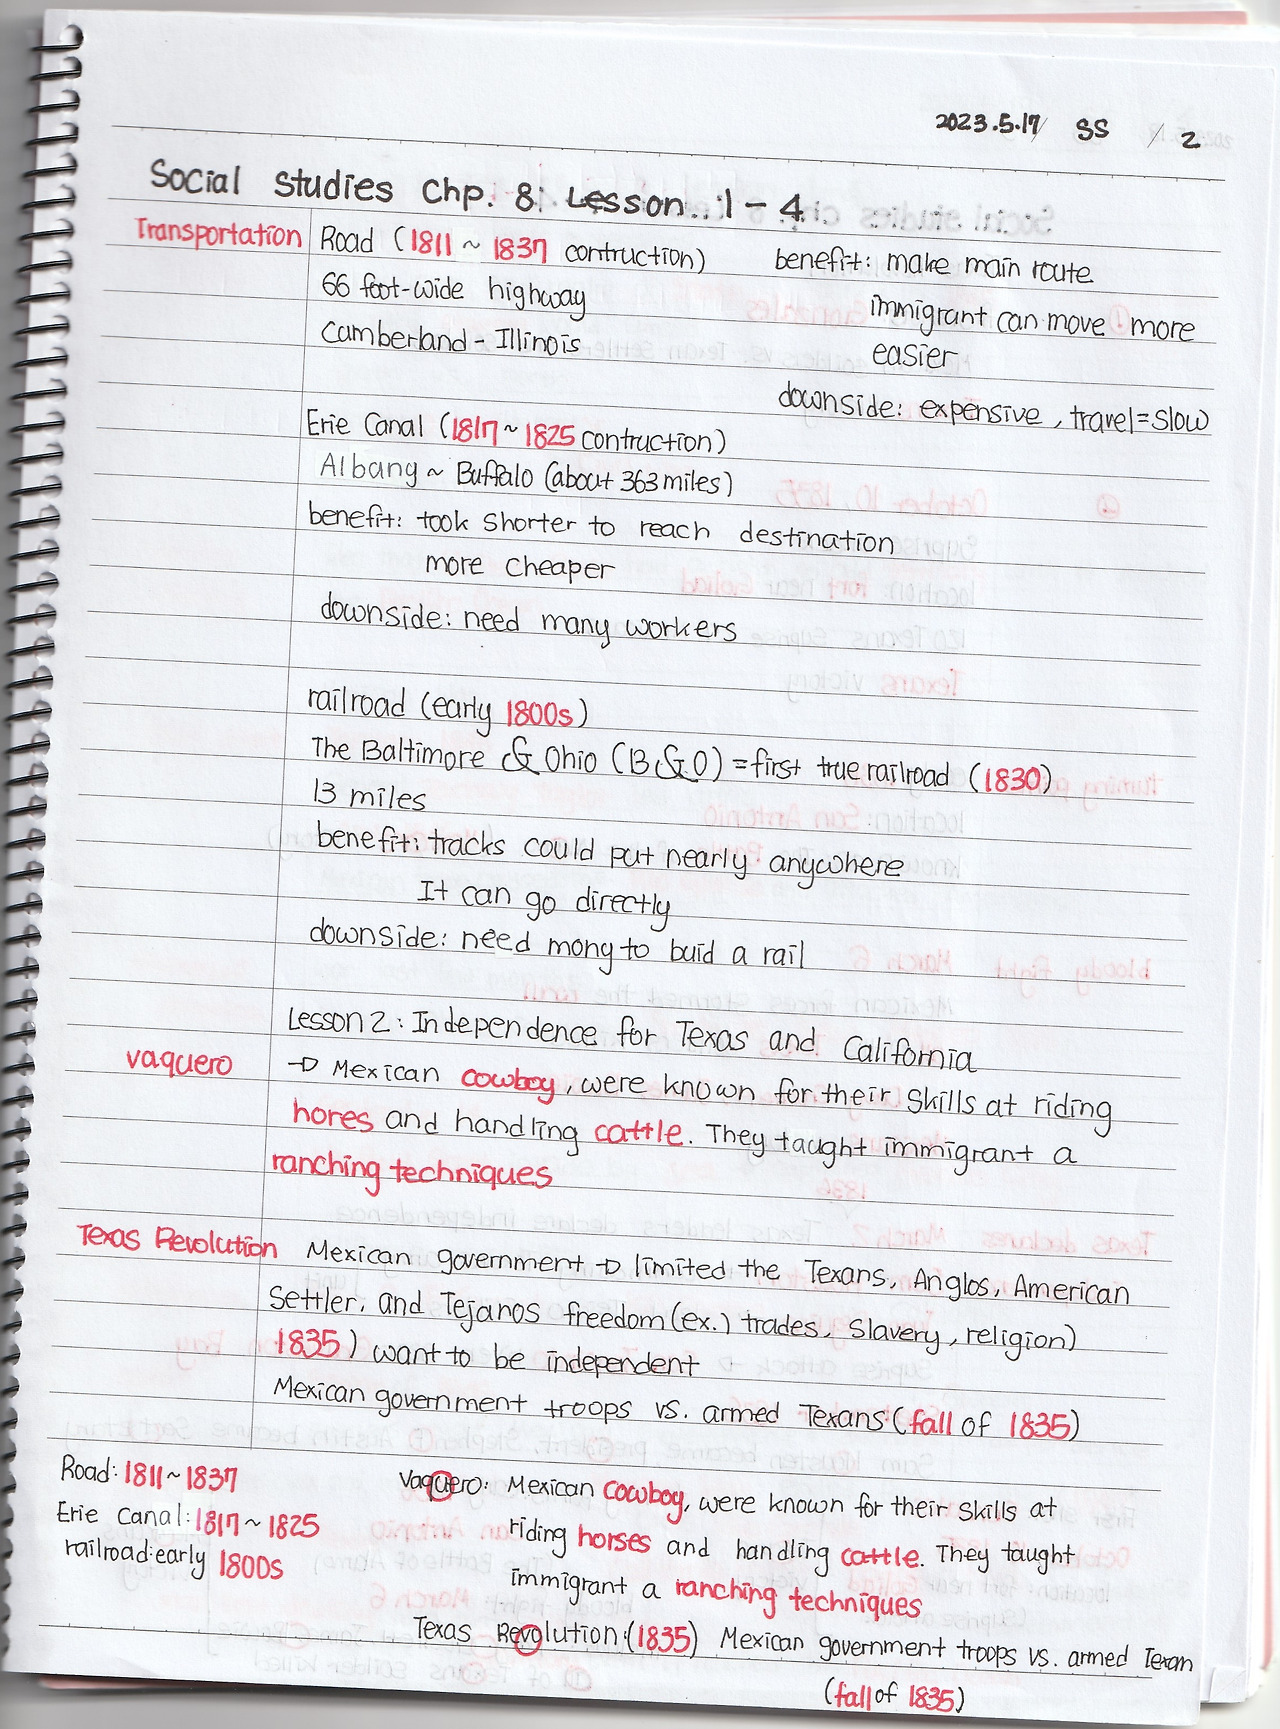 2023.5.17/ SS / 2
Social Studies Chp. 8: Lesson..:1 - 4
Transportation Road (1811 ~ 1837 contruction) benefit: make main route
66 foot-wide highway immigrant can move more
Cumberland - Illinois easier
downside: expensive, travel=slow
Erie Canal (1817 ~ 1825 contruction)
Albang ~ Buffalo (about 363 miles)
benefit: took shorter to reach destination
more cheaper
downside: need many workers
railroad (early 1800s)
The Baltimore & Ohio (B&O) = first true railroad (1830)
13 miles
benefit: tracks could put nearly anywhere
It can go directly
downside: need mong to buid a rail
Lesson 2: Independence for Texas and California
vaquero → Mexican cowboy, were known for their skills at riding
hores and handling cattle. They taught immigrant a
ranching techniques
Texas Revolution Mexican government → limited the Texans, Anglos, American
Settler, and Tejanos freedom (ex.) trades, slavery, religion)
1835) want to be independent
Mexican government troops vs. armed Texans (fall of 1835)
Road: 1811 ~ 1837
Erie Canal: 1817 ~ 1825
railroad: early 1800s
Vaquero: Mexican cowboy, were known for their skills at
riding horses and handling cattle. They taught
immigrant a ranching techniques
Texas Revolution: (1835) Mexican government troops vs. armed Texan
(fall of 1835)